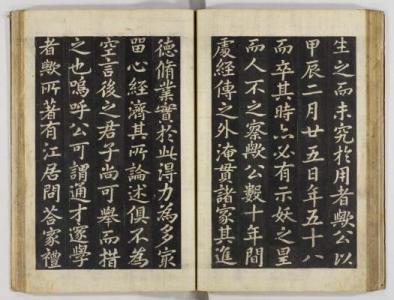 生之而未究於用者歟公以
甲辰二月廿五日年五十八
而卒其時亦必有示妖之星
而人不之察歟公数十年間
處經傳之外淹貫諸家其進
德脩業實於此得力為多家
畱心經濟其所論述俱不為
空言後之君子尚可舉而措
之也嗚呼公可謂通才邃學
者歟所著有江居問荅家禮